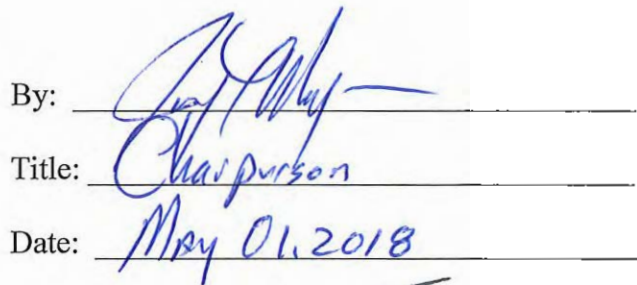 By:
Title: Chairpurson
Date: May 01, 2018